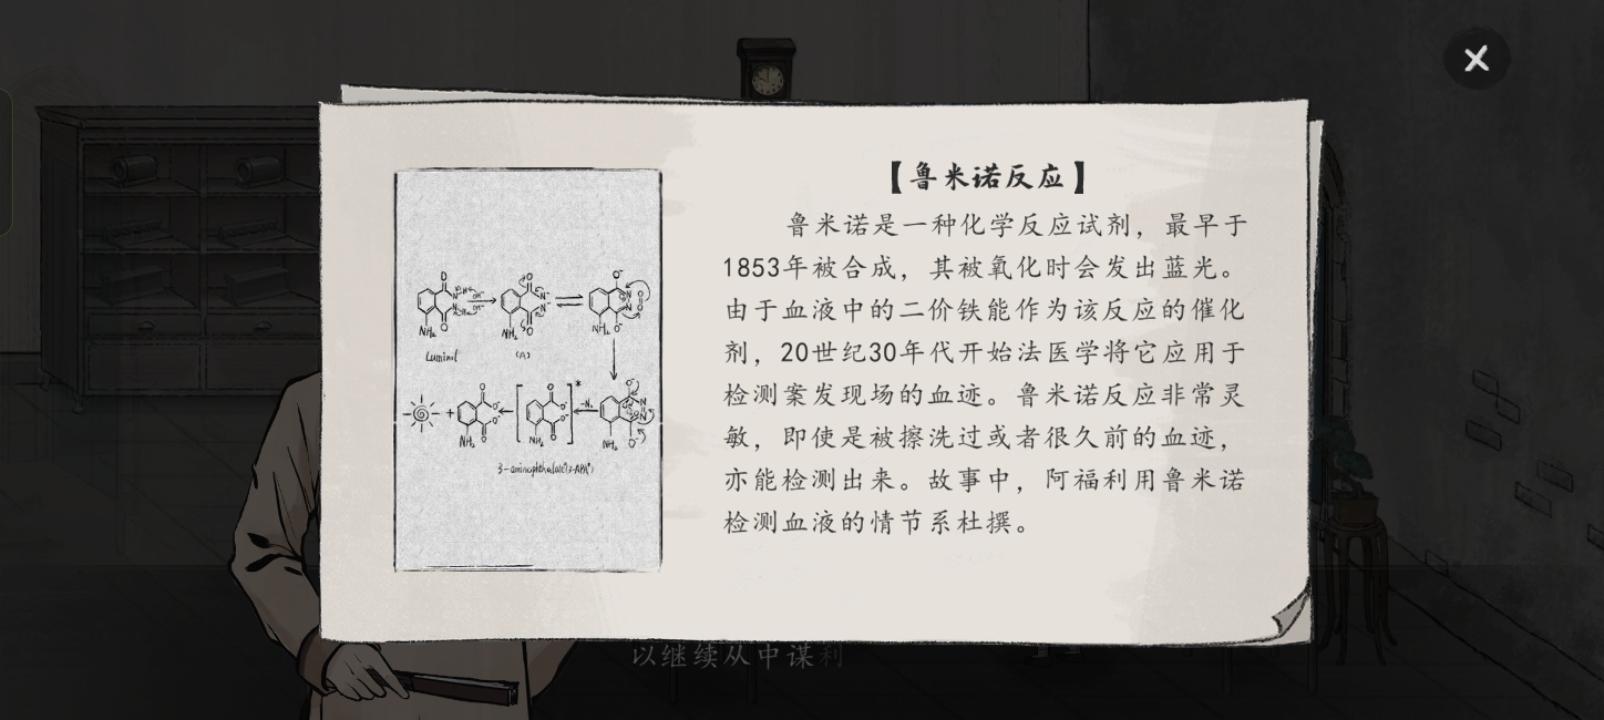 【鲁米诺反应】
鲁米诺是一种化学反应试剂，最早于
1853年被合成，其被氧化时会发出蓝光。
由于血液中的二价铁能作为该反应的催化
剂，20世纪30年代开始法医学将它应用于
检测案发现场的血迹。鲁米诺反应非常灵
敏，即使是被擦洗过或者很久前的血迹，
亦能检测出来。故事中，阿福利用鲁米诺
检测血液的情节系杜撰。
Luminol
(A)
NH₂
以继续从中谋利